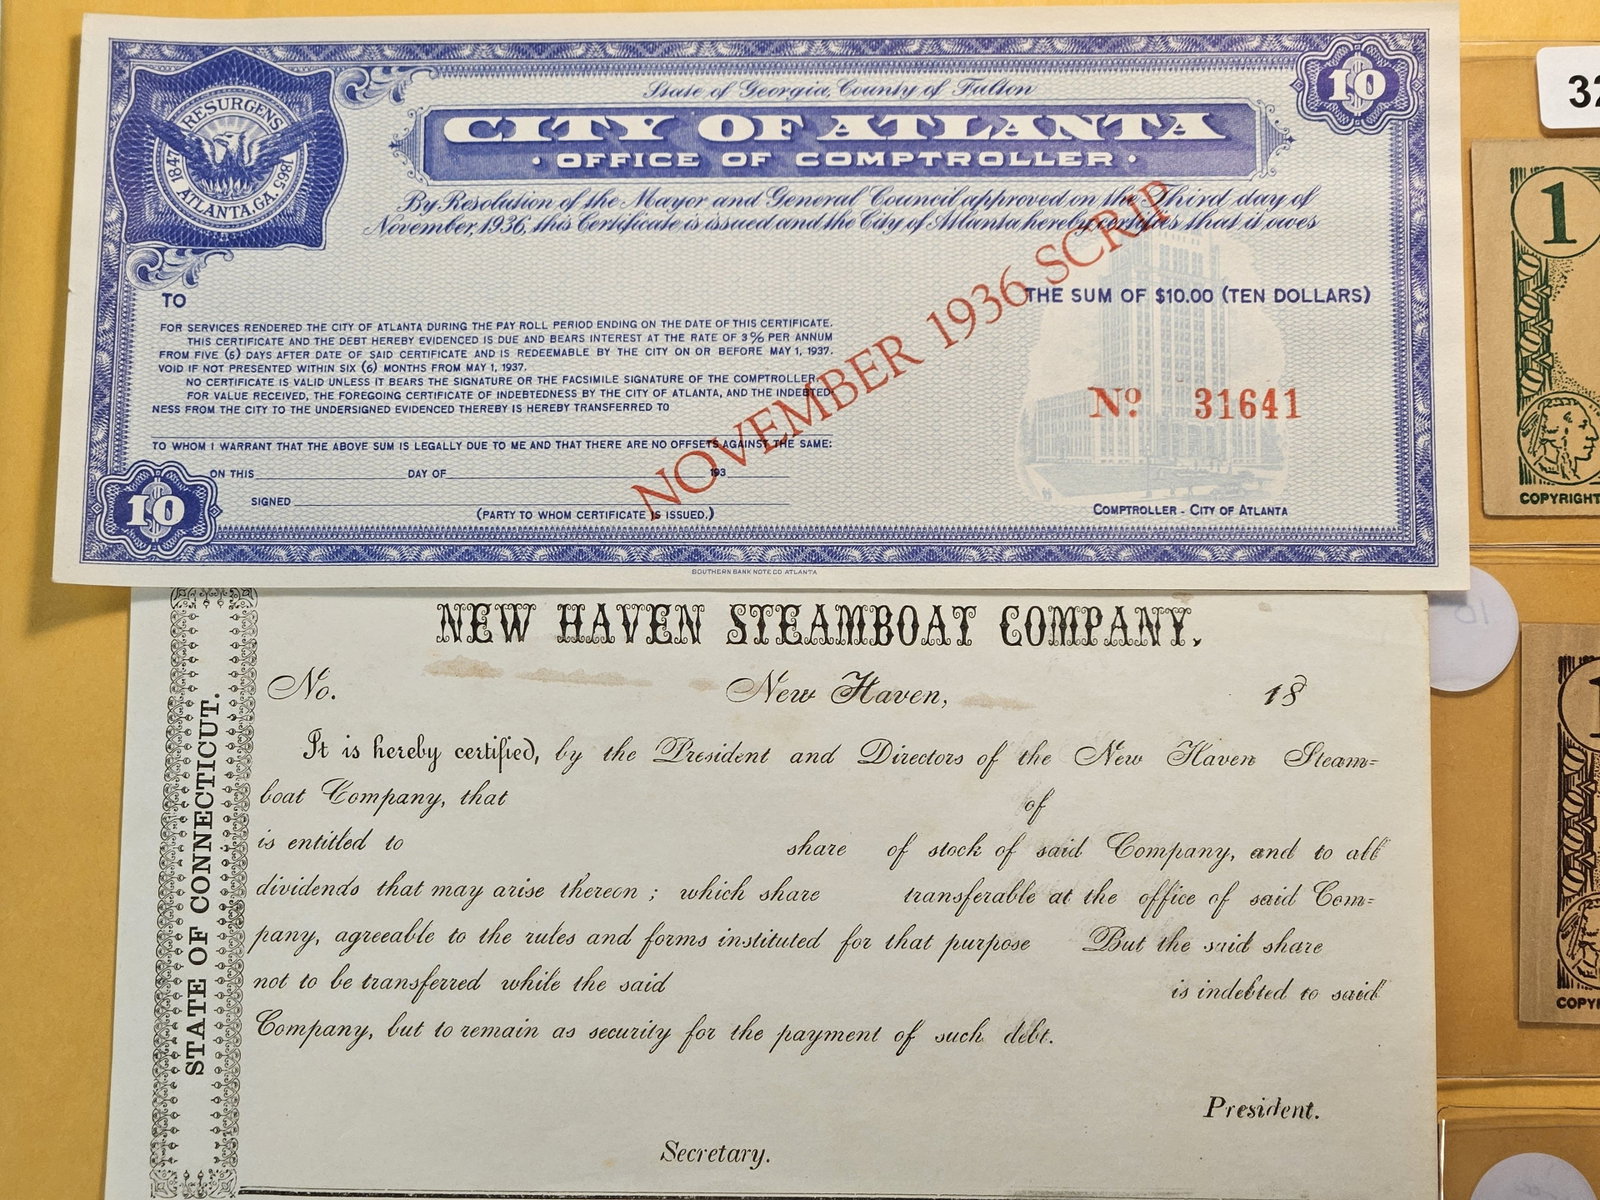 State of Georgia, County of Fulton
CITY OF ATLANTA
· OFFICE OF COMPTROLLER ·
RESURGENS
1847 ATLANTA GA. 1865
10
By Resolution of the Mayor and General Council approved on the Third day of
November, 1936, this Certificate is issued and the City of Atlanta hereby certifies that it owes
TO
THE SUM OF $10.00 (TEN DOLLARS)
FOR SERVICES RENDERED THE CITY OF ATLANTA DURING THE PAY ROLL PERIOD ENDING ON THE DATE OF THIS CERTIFICATE.
THIS CERTIFICATE AND THE DEBT HEREBY EVIDENCED IS DUE AND BEARS INTEREST AT THE RATE OF 3% PER ANNUM
FROM FIVE (5) DAYS AFTER DATE OF SAID CERTIFICATE AND IS REDEEMABLE BY THE CITY ON OR BEFORE MAY 1, 1937.
VOID IF NOT PRESENTED WITHIN SIX (6) MONTHS FROM MAY 1, 1937.
NO CERTIFICATE IS VALID UNLESS IT BEARS THE SIGNATURE OR THE FACSIMILE SIGNATURE OF THE COMPTROLLER.
FOR VALUE RECEIVED, THE FOREGOING CERTIFICATE OF INDEBTEDNESS BY THE CITY OF ATLANTA, AND THE INDEBTED-
NESS FROM THE CITY TO THE UNDERSIGNED EVIDENCED THEREBY IS HEREBY TRANSFERRED TO
TO WHOM I WARRANT THAT THE ABOVE SUM IS LEGALLY DUE TO ME AND THAT THERE ARE NO OFFSETS AGAINST THE SAME:
ON THIS DAY OF 193
SIGNED
(PARTY TO WHOM CERTIFICATE IS ISSUED.)
NOVEMBER 1936 SCRIP
No 31641
COMPTROLLER - CITY OF ATLANTA
10
SOUTHERN BANK NOTE CO ATLANTA
32
1
COPYRIGHT
10
1
COPY
NEW HAVEN STEAMBOAT COMPANY,
No. New Haven, 18
It is hereby certified, by the President and Directors of the New Haven Steam=
boat Company, that of
is entitled to share of stock of said Company, and to all
dividends that may arise thereon ; which share transferable at the office of said Com=
pany, agreeable to the rules and forms instituted for that purpose But the said share
not to be transferred while the said is indebted to said
Company, but to remain as security for the payment of such debt.
President.
Secretary.
STATE OF CONNECTICUT.